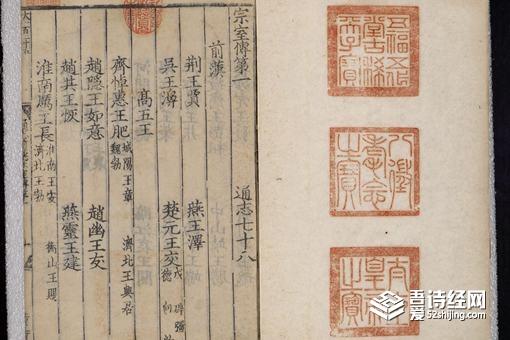 五福五代堂古稀天子寶
八徵耄念之寶
太上皇帝之寶
宗室傳第一 通志七十八
前漢
荆王賈 燕王澤
吳王濞 楚元王交 戊 辟彊 德 向
高五王
齊悼惠王肥 城陽王章 魏勃 濟北王興居
趙隱王如意 趙幽王友
趙共王恢 燕靈王建
淮南厲王長 淮南王安 濟北王勃 衡山王賜
吾诗经网
爱诗52shijing.com